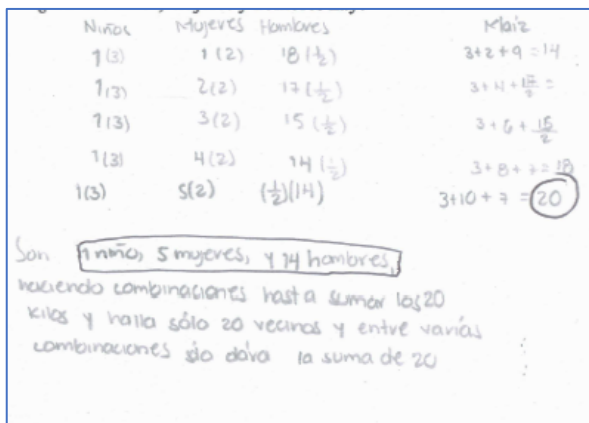 Niños Mujeres Hombres Maiz
1(3) 1(2) 18(½) 3+2+9=14
1(3) 2(2) 17(½) 3+4+17/2=
1(3) 3(2) 15(½) 3+6+15/2
1(3) 4(2) 14(½) 3+8+7=18
1(3) 5(2) (½)(14) 3+10+7=20
Son 1 niño, 5 mujeres, y 14 hombres,
haciendo combinaciones hasta sumar los 20
kilos y halla sólo 20 vecinos y entre varias
combinaciones sio dava la suma de 20